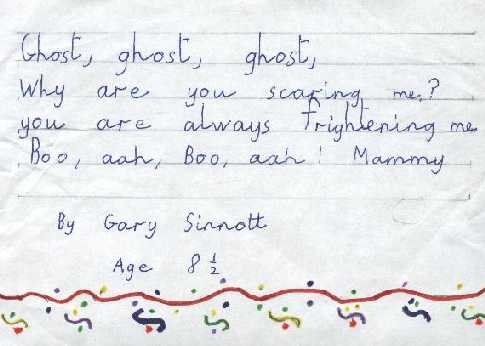 Ghost, ghost, ghost,
Why are you scaring me?
you are always frightening me
Boo, aah, Boo, aah! Mammy
By Gary Sinnott
Age 8 ½